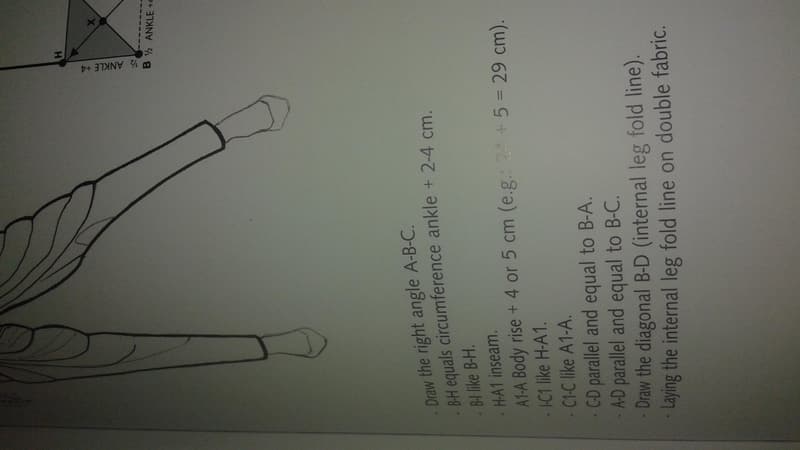 H
X
½ ANKLE +4
B ½ ANKLE
· Draw the right angle A-B-C.
· B-H equals circumference ankle + 2-4 cm.
· B-I like B-H.
· H-A1 inseam.
A1-A Body rise + 4 or 5 cm (e.g.: + 5 = 29 cm).
· I-C1 like H-A1.
· C1-C like A1-A.
· C-D parallel and equal to B-A.
· A-D parallel and equal to B-C.
· Draw the diagonal B-D (internal leg fold line).
· Laying the internal leg fold line on double fabric.